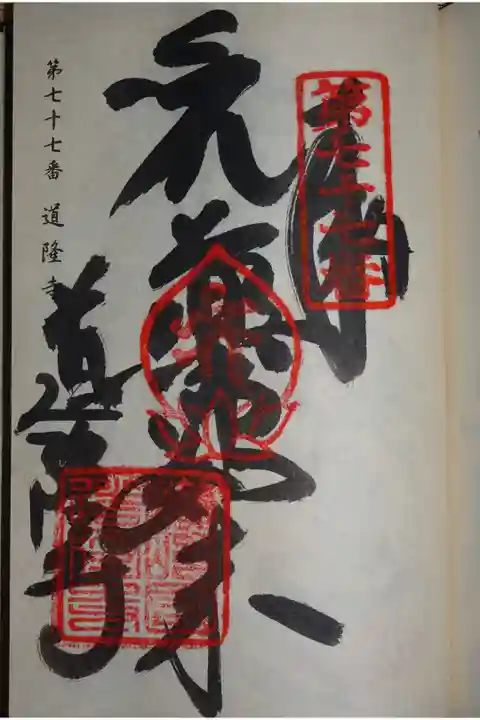 第七十七番
奉納
薬師如来
道隆寺
第七十七番 道隆寺